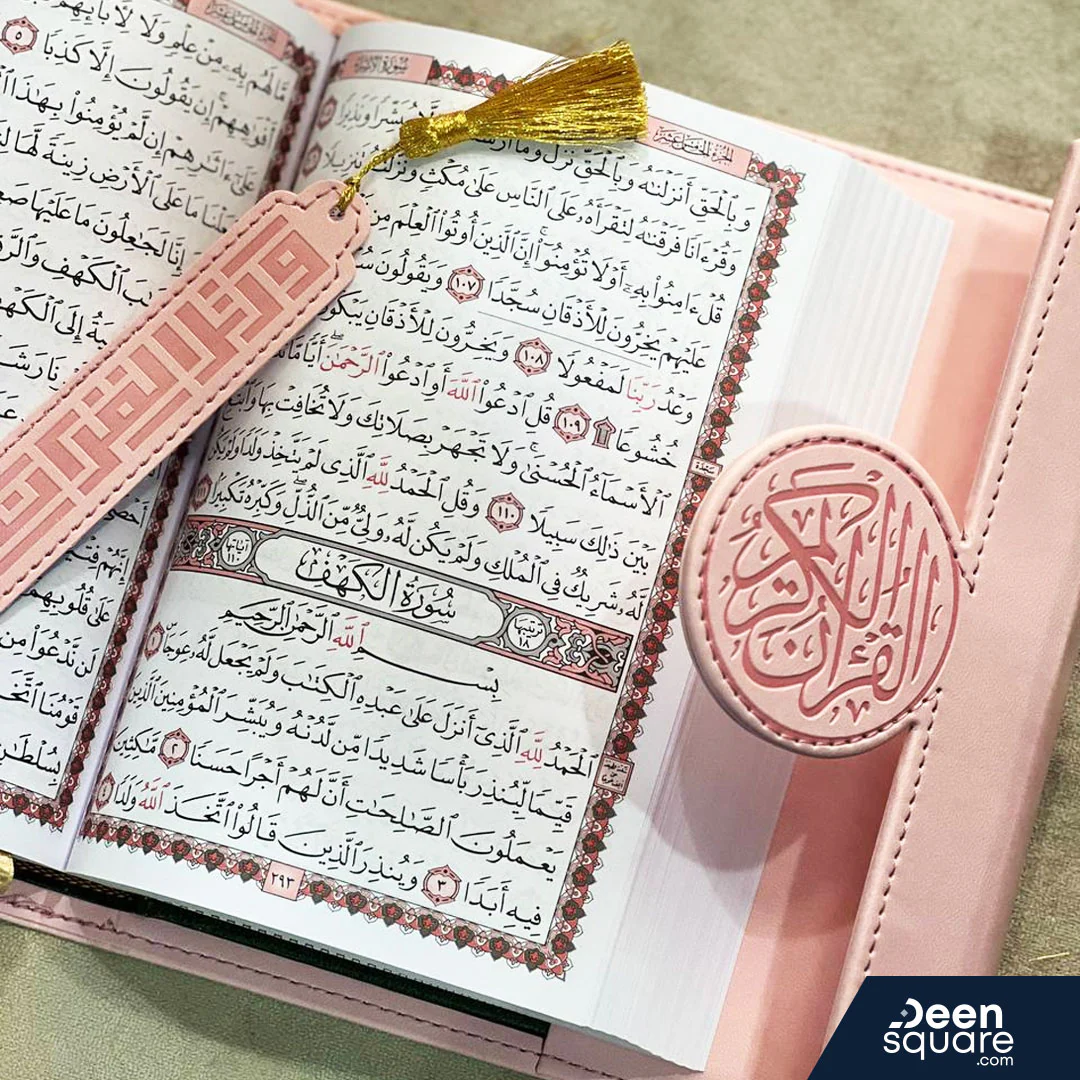 سُورَةُ الإِسۡرَاءِ
الجُزءُ الخَامِسَ عَشَرَ
مُبَشِّرٗا وَنَذِيرٗا
وَبِٱلۡحَقِّ أَنزَلۡنَٰهُ وَبِٱلۡحَقِّ نَزَلَۗ وَمَآ
وَقُرۡءَانٗا فَرَقۡنَٰهُ لِتَقۡرَأَهُۥ عَلَى ٱلنَّاسِ عَلَىٰ مُكۡثٖ وَنَزَّلۡنَٰهُ تَنزِيلٗا
قُلۡ ءَامِنُواْ بِهِۦٓ أَوۡ لَا تُؤۡمِنُوٓاْۚ إِنَّ ٱلَّذِينَ أُوتُواْ ٱلۡعِلۡمَ مِن
عَلَيۡهِمۡ يَخِرُّونَۤ لِلۡأَذۡقَانِۤ سُجَّدٗاۤ ١٠٧ وَيَقُولُونَ
وَعۡدُ رَبِّنَا لَمَفۡعُولٗا ١٠٨ وَيَخِرُّونَ لِلۡأَذۡقَانِ يَبۡكُونَ
خُشُوعٗا ۩ ١٠٩ قُلِ ٱدۡعُواْ ٱللَّهَ أَوِ ٱدۡعُواْ ٱلرَّحۡمَٰنَۖ أَيّٗا مَّا
ٱلۡأَسۡمَآءُ ٱلۡحُسۡنَىٰۚ وَلَا تَجۡهَرۡ بِصَلَاتِكَ وَلَا تُخَافِتۡ بِهَا وَٱبۡتَغِ
بَيۡنَ ذَٰلِكَ سَبِيلٗا ١١٠ وَقُلِ ٱلۡحَمۡدُ لِلَّهِ ٱلَّذِي لَمۡ يَتَّخِذۡ وَلَدٗا وَلَمۡ يَكُن
لَّهُۥ شَرِيكٞ فِي ٱلۡمُلۡكِ وَلَمۡ يَكُن لَّهُۥ وَلِيّٞ مِّنَ ٱلذُّلِّۖ وَكَبِّرۡهُ تَكۡبِيرَۢا ١١١
ترتيبها ١٨ سُورَةُ الكَهۡفِ آياتها ١١٠
بِسۡمِ ٱللَّهِ ٱلرَّحۡمَٰنِ ٱلرَّحِيمِ
ٱلۡحَمۡدُ لِلَّهِ ٱلَّذِيٓ أَنزَلَ عَلَىٰ عَبۡدِهِ ٱلۡكِتَٰبَ وَلَمۡ يَجۡعَل لَّهُۥ عِوَجَاۜ ١
قَيِّمٗا لِّيُنذِرَ بَأۡسٗا شَدِيدٗا مِّن لَّدُنۡهُ وَيُبَشِّرَ ٱلۡمُؤۡمِنِينَ ٱلَّذِينَ
يَعۡمَلُونَ ٱلصَّٰلِحَٰتِ أَنَّ لَهُمۡ أَجۡرًا حَسَنٗا ٢ مَّٰكِثِينَ
فِيهِ أَبَدٗا ٣ وَيُنذِرَ ٱلَّذِينَ قَالُواْ ٱتَّخَذَ ٱللَّهُ وَلَدٗا ٤
٢٩٣
مَّا لَهُم بِهِۦ مِنۡ عِلۡمٖ وَلَا لِأٓبَآئِهِمۡ
أَفۡوَٰهِهِمۡۚ إِن يَقُولُونَ إِلَّا كَذِبٗا ٥
عَلَىٰٓ ءَاثَٰرِهِمۡ إِن لَّمۡ يُؤۡمِنُواْ بِهَٰذَا
مَا عَلَى ٱلۡأَرۡضِ زِينَةٗ لَّهَا
وَإِنَّا لَجَٰعِلُونَ مَا عَلَيۡهَا
ٱلۡكَهۡفِ
إِلَى ٱلۡكَهۡفِ
عَلَىٰ قُلُوبِهِمۡ
لَن نَّدۡعُوَاْ مِن
قَوۡمُنَا
بِسُلۡطَٰنِۭ
القرآن الكريم
Deen
square
.com